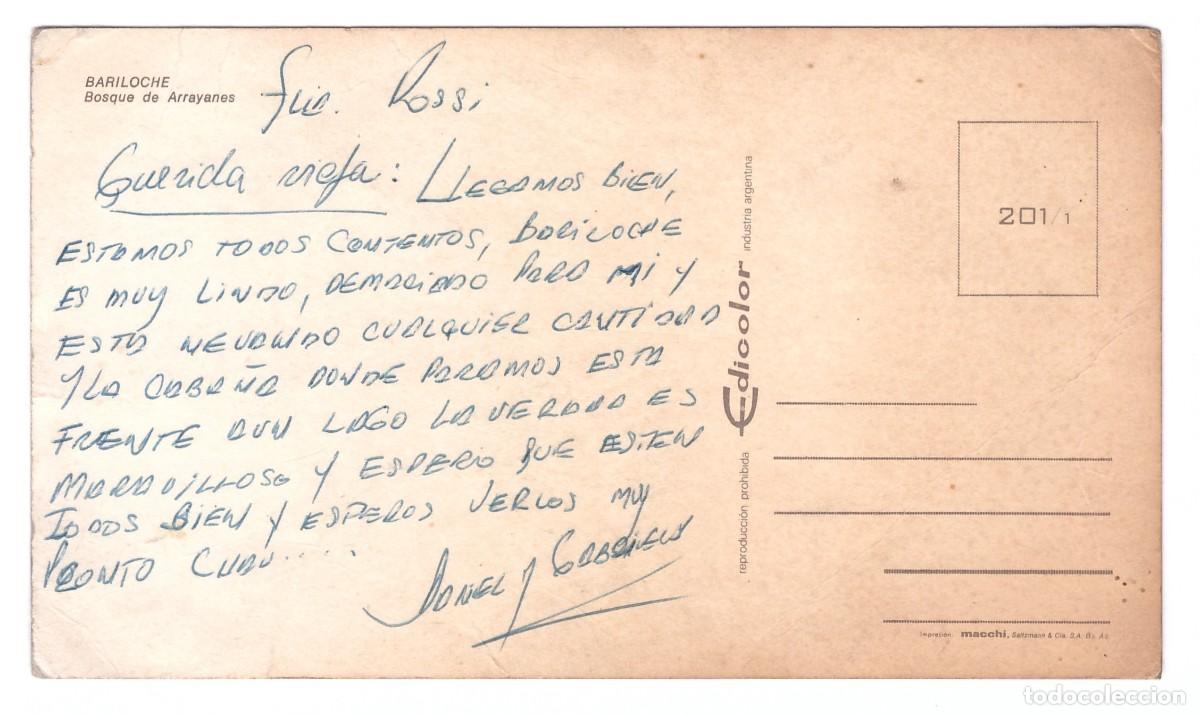 BARILOCHE
Bosque de Arrayanes
Flia. Rossi
Querida vieja: LLEGAMOS BIEN,
ESTAMOS TODOS CONTENTOS, BARILOCHE
ES MUY LINDO, DEMACIADO PARA MI Y
ESTA NEVANDO CUALQUIER CANTIDAD
Y LA CABAÑA DONDE PARAMOS ESTA
FRENTE AUN LAGO LA VERDAD ES
MARAVILLOSO Y ESPERO QUE ESTEN
TODOS BIEN Y ESPEROS VERLOS MUY
PRONTO CHAU.....
DANIEL Y GABRIELA
Edicolor industria argentina
reproducción prohibida
201/1
Impresión macchi, Saltzmann & Cía. S.A. Bs. As.
todocoleccion